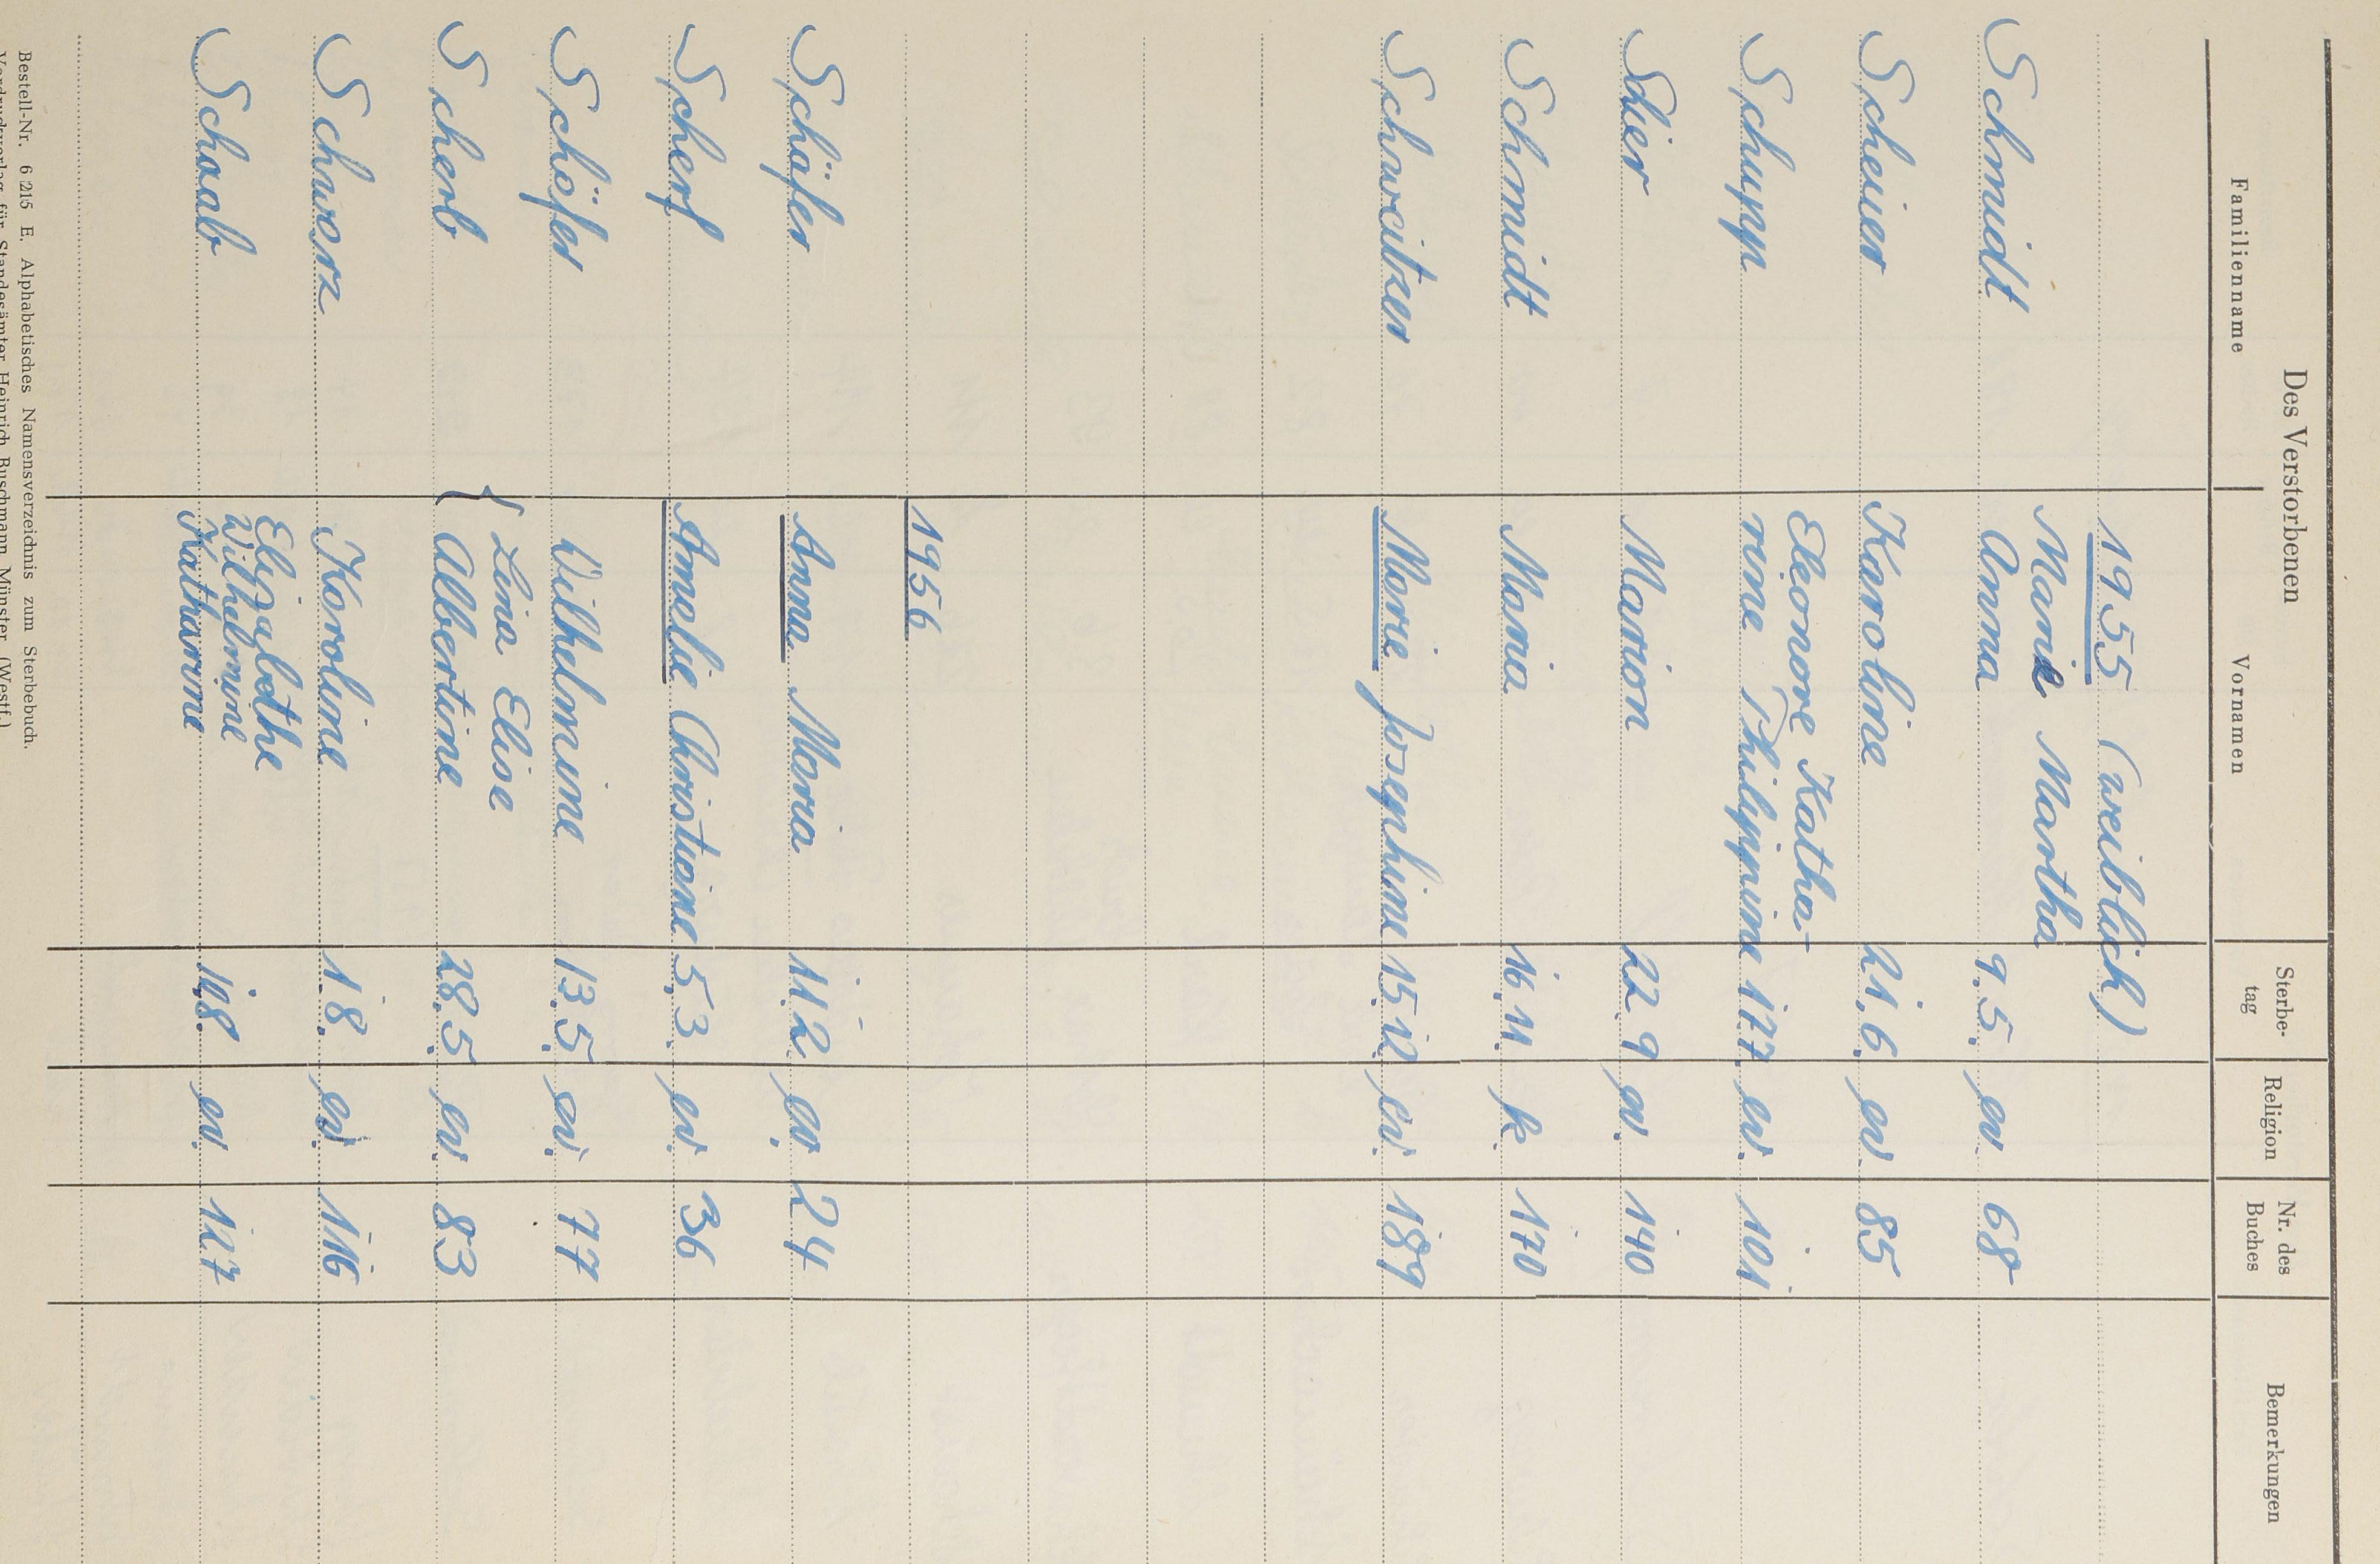 Des Verstorbenen
Familienname Vornamen Sterbe-tag Religion Nr. des Buches Bemerkungen
1955 (weiblich)
Marie Martha
Schmidt Anna 9.5. ev. 68
Scheuer Karoline 21.6. ev. 85
Eleonore Katha-
Schupp rine Philippine 17.7. ev. 101
Schier Marion 22.9. ev. 140
Schmidt Maria 16.11. k. 170
Schweitzer Marie Josephine 15.12. ev. 189
1956
Schäfer Anna Maria 11.2. ev. 24
Scherf Amalie Christiane 5.3. ev. 36
Schäfer Wilhelmine 13.5. ev. 77
Lina Elise
Scherb Albertine 28.5. ev. 83
Schwarz Karoline 1.8. ev. 116
Elisabethe
Wilhelmine
Schaab Katharine ev.
Bestell-Nr. 6 215 E. Alphabetisches Namensverzeichnis zum Sterbebuch.
Vordruckverlag für Standesämter Heinrich Buschmann, Münster (Westf.)